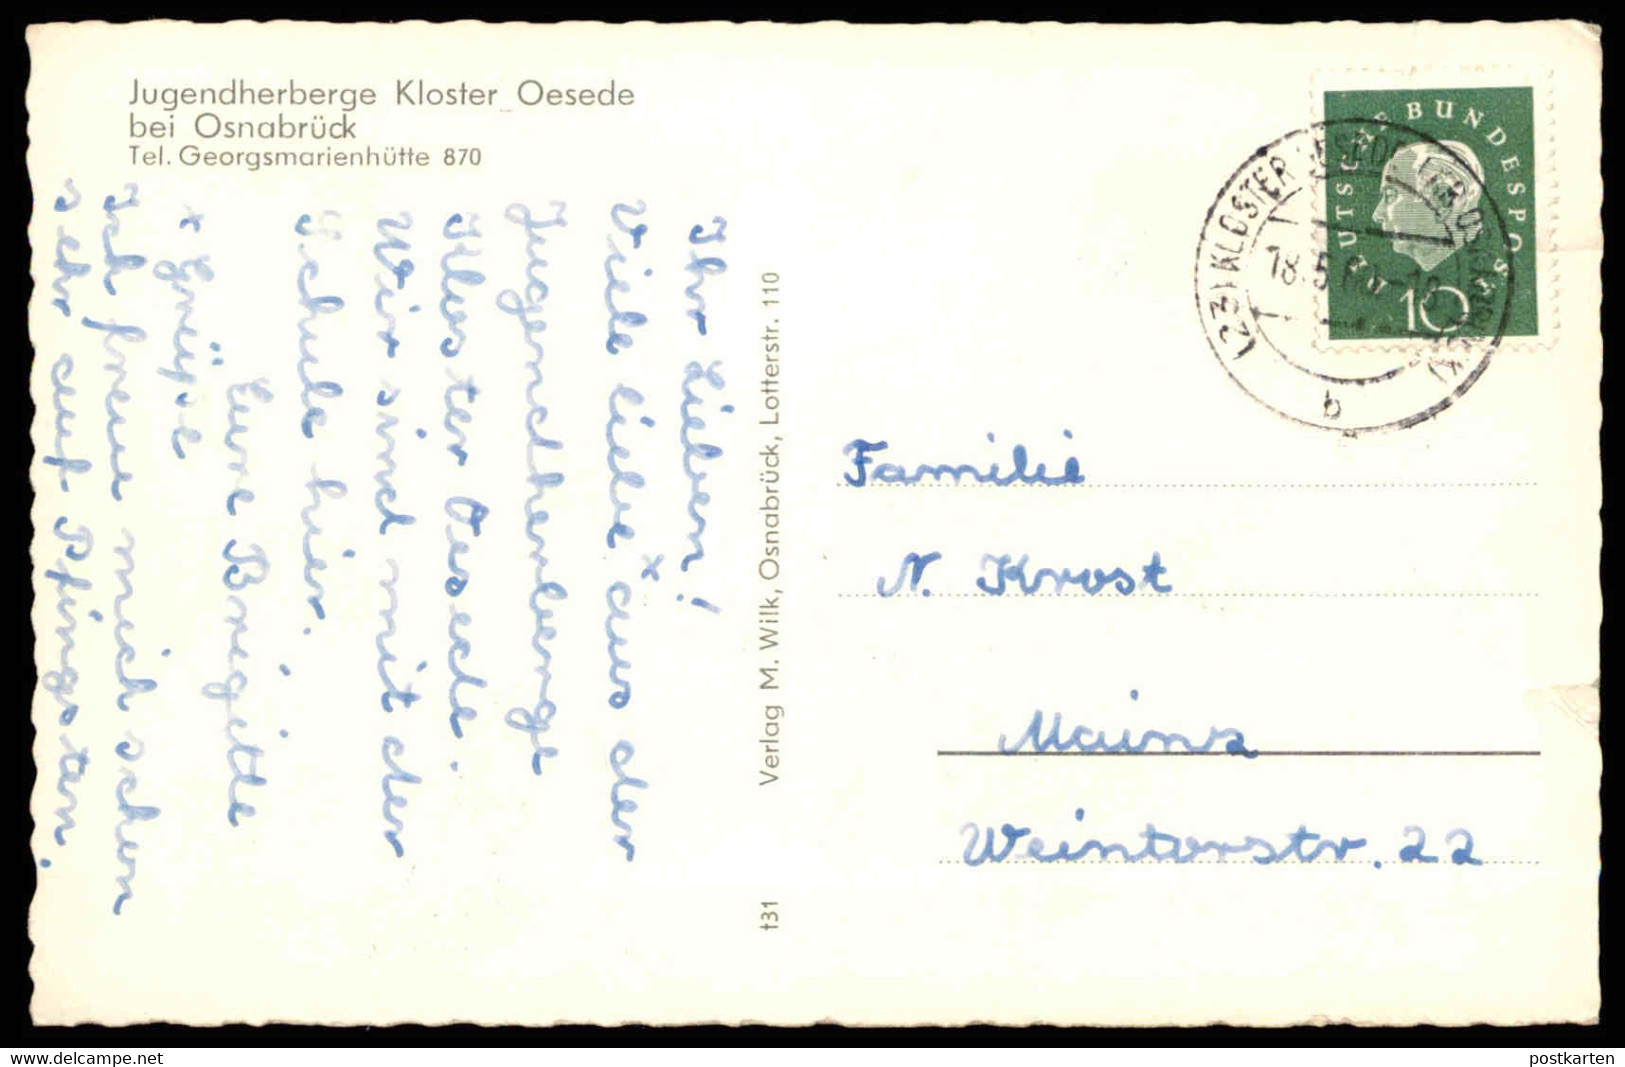 Jugendherberge Kloster Oesede
bei Osnabrück
Tel. Georgsmarienhütte 870
Ihr Lieben!
Viele liebe * aus der
Jugendherberge
Kloster Oesede.
Wir sind mit der
Schule hier.
Eure Brigitte
* Grüße
Ich freue mich schon
sehr auf Pfingsten.
Verlag M. Wilk, Osnabrück, Lotterstr. 110
t31
DEUTSCHE BUNDESPOST
10
(23) KLOSTER OESEDE
18.5.
b
Familie
N. Krost
Mainz
Weintorstr. 22
www.delcampe.net
postkarten